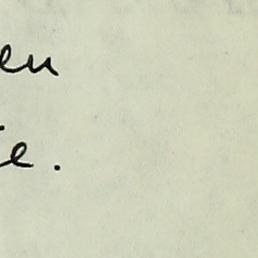 en
e.